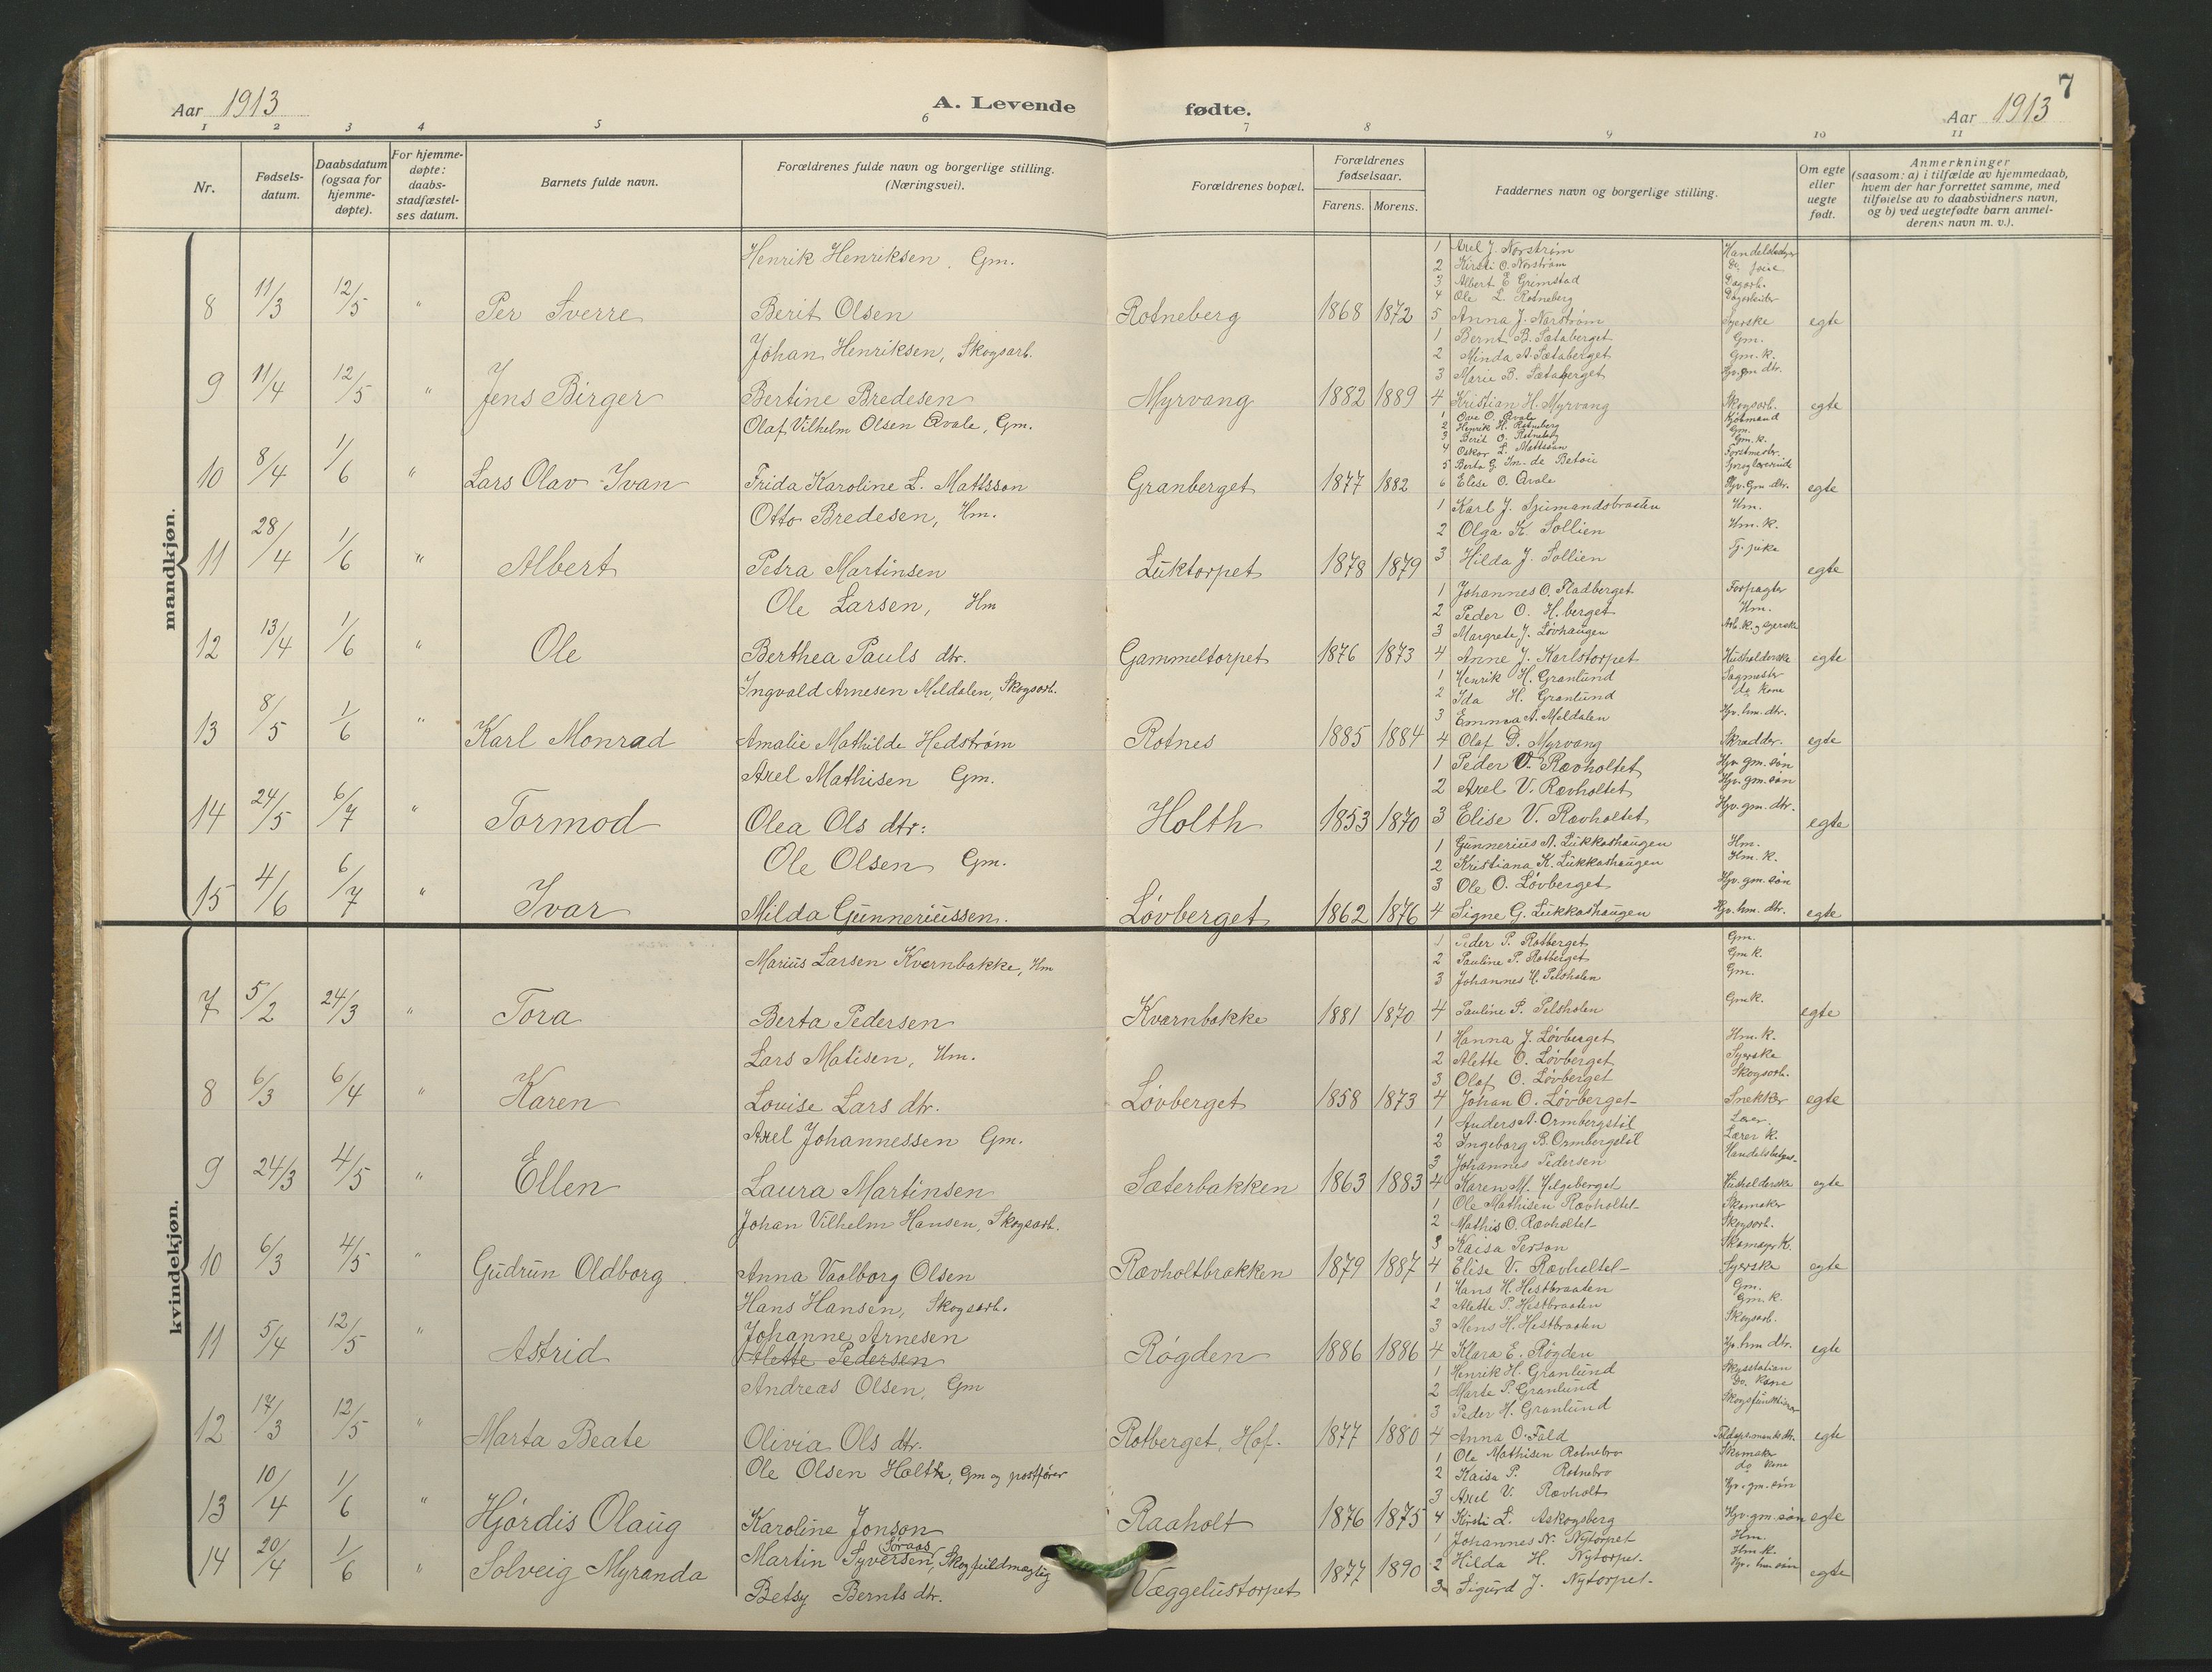 7
Aar 1913 A. Levende fødte. Aar 1913
1 2 3 4 5 6 7 8 9 10 11
Nr.
Fødsels-
datum.
Daabsdatum
(ogsaa for
hjemme-
døpte).
For hjemme-
døpte:
daabs-
stadfæstel-
ses datum.
Barnets fulde navn.
Forældrenes fulde navn og borgerlige stilling.
(Næringsvei).
Forældrenes bopæl.
Forældrenes
fødselsaar.
Farens. Morens.
Faddernes navn og borgerlige stilling.
Om egte
eller
uegte
født.
Anmerkninger
(saasom: a) i tilfælde av hjemmedaab,
hvem der har forrettet samme, med
tilføielse av to daabsvidners navn,
og b) ved uegtefødte barn anmel-
derens navn m. v.).
mandkjøn.
Henrik Henriksen, Gm.
8 11/3 12/5 " Per Sverre Berit Olsen Rotneberg 1868 1872 egte
1 Axel J. Norstrøm Handelsbestyr
2 Kirsti O. Norstrøm Do
3 Albert E Grimstad Dagarb.
4 Ole L. Rotneberg Dagarbeider
5 Anna J. Norstrøm Syerske
Johan Henriksen, Skogsarb.
9 11/4 12/5 " Jens Birger Bertine Bredesen Myrvang 1882 1889 egte
1 Bernt B. Sætaberget Gm.
2 Minda A. Sætaberget Gm. K.
3 Marie B. Sætaberget Hjv. gm dtr.
4 Kristian H. Myrvang Skogsarb.
Olaf Vilhelm Olsen Qvale, Gm.
10 8/4 1/6 " Lars Olav Ivan Frida Karoline L. Mattsson Granberget 1877 1882 egte
1 Ove O. Qvale Kjøbmand
2 Henrik H. Rotneberg Gm.
3 Berit O. Rotneberg Gm. K.
4 Oskar L. Mattsson Forstmester.
5 Berta G. de Betou Sproglærerinde
6 Elise O. Qvale Hjv. Gm dtr.
Otto Bredesen, Hm.
11 28/4 1/6 " Albert Petra Martinsen Luktorpet 1878 1879 egte
1 Karl J. Spumandsbraaten Hm.
2 Olga K. Sollien Hm. K.
3 Hilda J. Sollien Tj. pike
Ole Larsen, Hm
12 13/4 1/6 " Ole Berthea Pauls dtr. Gammeltorpet 1876 1873 egte
1 Johannes O. Fladberget Forpagter
2 Peder O. H.berget Hm.
3 Margrete J. Løvhaugen Arb. K. og syerske
4 Anne J. Karlstorpet Husholderske
Ingvald Arnesen Meldalen, Skogsarb.
13 8/5 1/6 " Karl Monrad Amalie Mathilde Hedstrøm Rotnes 1885 1884 egte
1 Henrik H. Granlund Sagmester
2 Ida H. Granlund do kone
3 Emma A. Meldalen Hjv. hm. dtr.
4 Olaf D. Myrvang Skrædder.
Axel Mathisen Gm.
14 24/5 6/7 " Tormod Olea Ols dtr: Holth 1853 1870 egte
1 Peder V. Rævholtet Hjv. gm. søn
2 Axel V. Rævholtet Hjv. gm. søn
3 Elise V. Rævholtet Hjv. gm. dtr.
Ole Olsen Gm.
15 4/6 6/7 " Ivar Milda Gunneriussen. Løvberget 1862 1876 egte
1 Gunnerius A. Lukkashaugen Hm.
2 Kristiana K. Lukkashaugen Hm. K.
3 Ole O. Løvberget Hjv. gm. søn
4 Signe G. Lukkashaugen Hjv. hm. dtr.
kvindekjøn.
Marius Larsen Kvernbakke, Hm
7 5/2 24/3 " Tora Berta Pedersen Kvarnbakke 1881 1870 egte
1 Peder P. Rotberget Gm.
2 Pauline P. Rotberget Gm K.
3 Johannes H. Pelsholen Gm.
4 Pauline P. Pelsholen Gm K.
Lars Matisen, Hm.
8 6/3 6/4 " Karen Louise Lars dtr. Løvberget 1858 1873 egte
1 Hanna J. Løvberget Hm. K.
2 Alette O. Løvberget Syerske
3 Olaf O. Løvberget Skogsarb.
4 Johan O. Løvberget Snekker
Axel Johannessen Gm.
9 24/3 4/5 " Ellen Laura Martinsen Sæterbakken 1863 1883 egte
1 Anders A. Ormbergstil Lærer
2 Ingeborg B. Ormbergstil Lærer K.
3 Johannes Pedersen
4 Karen M. Helgeberget Husholderske
Johan Vilhelm Hansen, Skogsarb.
10 6/3 4/5 " Gudrun Oldborg Anna Vaalborg Olsen Rævholtbrakken 1879 1887 egte
1 Ole Mathisen Rævholtet Skomaker
2 Mathis O. Rævholtet Skogsarb.
3 Kaisa Person
4 Elise V. Rævholtet Syerske
Hans Hansen, Skogsarb.
11 5/4 12/5 " Astrid Johanne Arnesen Røgden 1886 1886 egte
Alette Pedersen
1 Hans H. Hestbraaten Gm.
2 Alette P. Hestbraaten Gm K.
3 Mens H. Hestbraaten Skogsarb.
4 Klara E. Røgden Hjv. hm dtr.
Andreas Olsen, Gm
12 17/3 12/5 " Marta Beate Olivia Ols dtr. Rotberget, Hof. 1877 1880 egte
1 Henrik H. Granlund Skysstation
2 Marte P. Granlund Do. Kone
3 Peder H. Granlund Skogsfunktionær
4 Anna O. Fald
Ole Olsen Holth, Gm og postfører
13 10/4 1/6 " Hjørdis Olaug Karoline Jonson Raaholt 1876 1875 egte
1 Ole Mathisen Rotnebro Skomaker
2 Kaisa P. Rotnebro do kone
3 Axel V. Rævholt Hjv. gm. søn
4 Kirsti L. Askogsberg Hjv. gm. søn
Søraas
14 20/4 1/6 " Solveig Myranda Martin Syversen, Skogfuldmægtig
Betsy Bernts dtr. Væggelustorpet 1877 1890 egte
1 Johannes N. Nytorpet Hm.
2 Hilda H. Nytorpet Hm K.
3 Sigurd J. Nytorpet Hjv. hm søn